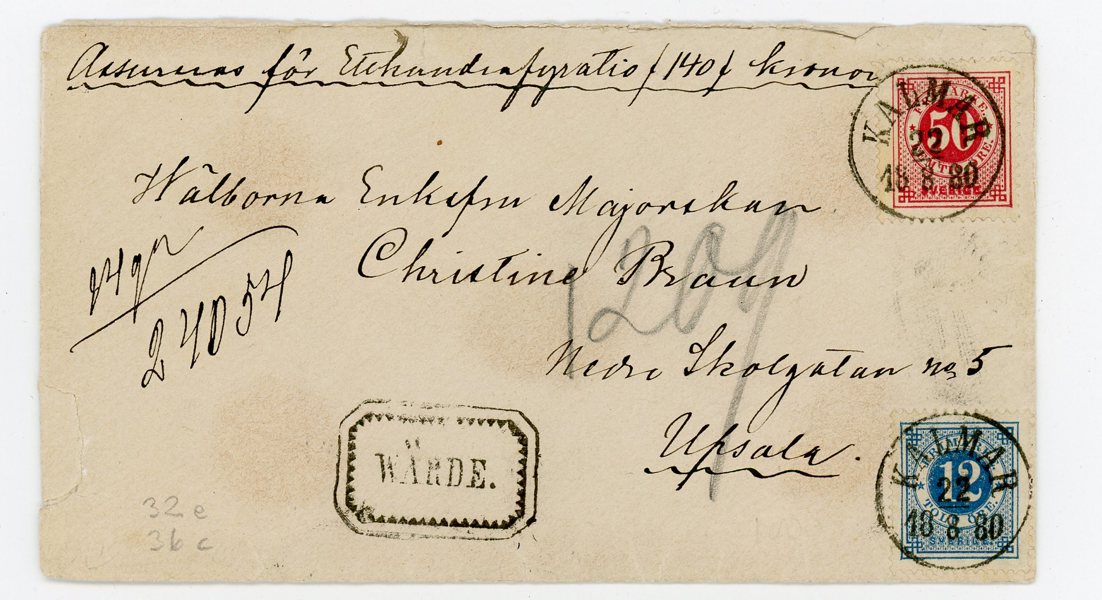 Assureras för Etthundrafyratio (140) kronor
Wälborna Enkefru Majorskan
Christine Braun
Nedre Skolgatan no 5
Upsala.
24054
1209
WÄRDE.
32 e
36 c
FRIMÄRKE.
50
SVERIGE.
KALMAR
22
18 8 80
FRIMÄRKE.
12
TOLF ÖRE.
SVERIGE.
KALMAR
22
18 8 80